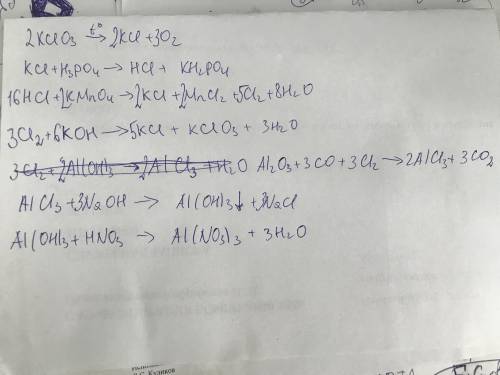 2KClO3 t°→ 2KCl + 3O2
KCl + H3PO4 → HCl + KH2PO4
16HCl + 2KMnO4 → 2KCl + 2MnCl2 + 5Cl2 + 8H2O
3Cl2 + 6KOH → 5KCl + KClO3 + 3H2O
3Cl2 + 2Al(OH)3 → 2AlCl3 + H2O Al2O3 + 3CO + 3Cl2 → 2AlCl3 + 3CO2
AlCl3 + 3NaOH → Al(OH)3↓ + 3NaCl
Al(OH)3 + HNO3 → Al(NO3)3 + 3H2O
С. Кузиков